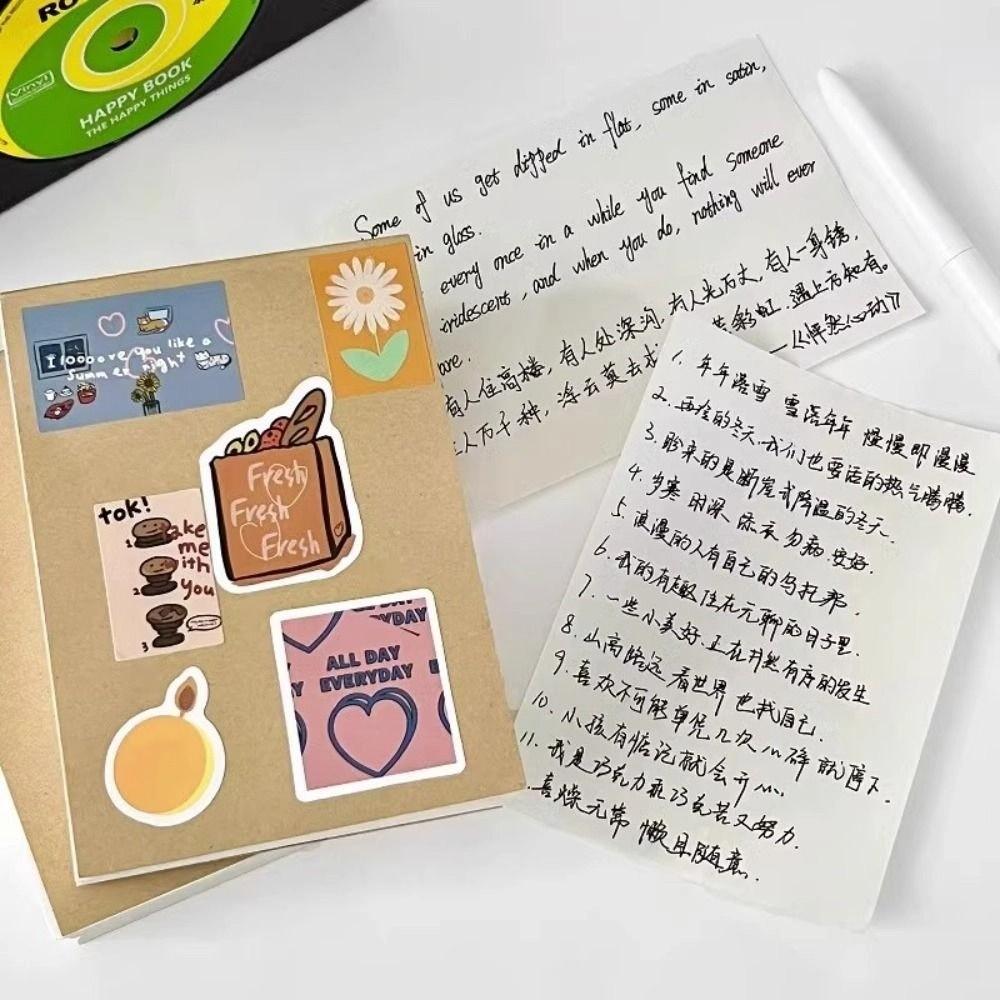 RO
Vinyl
HAPPY BOOK
THE HAPPY THINGS
Some of us get dipped in flat, some in satin,
in gloss.
every once in a while you find someone
iridescent, and when you do, nothing will ever
are.
有人住高楼，有人处深沟，有人光万丈，有人一身锈，
人万千种，浮云莫去求 若彩虹，遇上方知有。
—《怦然心动》
I looove you like a
summer night
Fresh
Fresh
Fresh
tok!
take
me
with
you
1
2
3
ALL DAY
EVERYDAY
1. 年年落雪 雪落年年 慢慢即漫漫
2. 再冷的冬天，我们也要活的热气腾腾.
3. 盼来的是断崖式降温的冬天~
4. 岁寒 时深 添衣 勿病 安好.
5. 浪漫的人有自己的乌托邦.
6. 我的有趣住在无聊的日子里.
7. 一些小美好.正在井然有序的发生
8. 山高路远 看世界 也找自己.
9. 喜欢不可能单凭几次心碎就停下.
10. 小孩有惦记就会开心.
11. 我是巧克力 乖巧 克苦又努力.
喜燥无常 懒且随意.